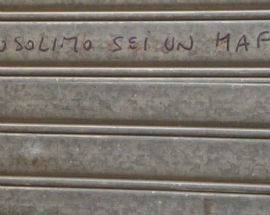 USOLINO SEI UN MAF